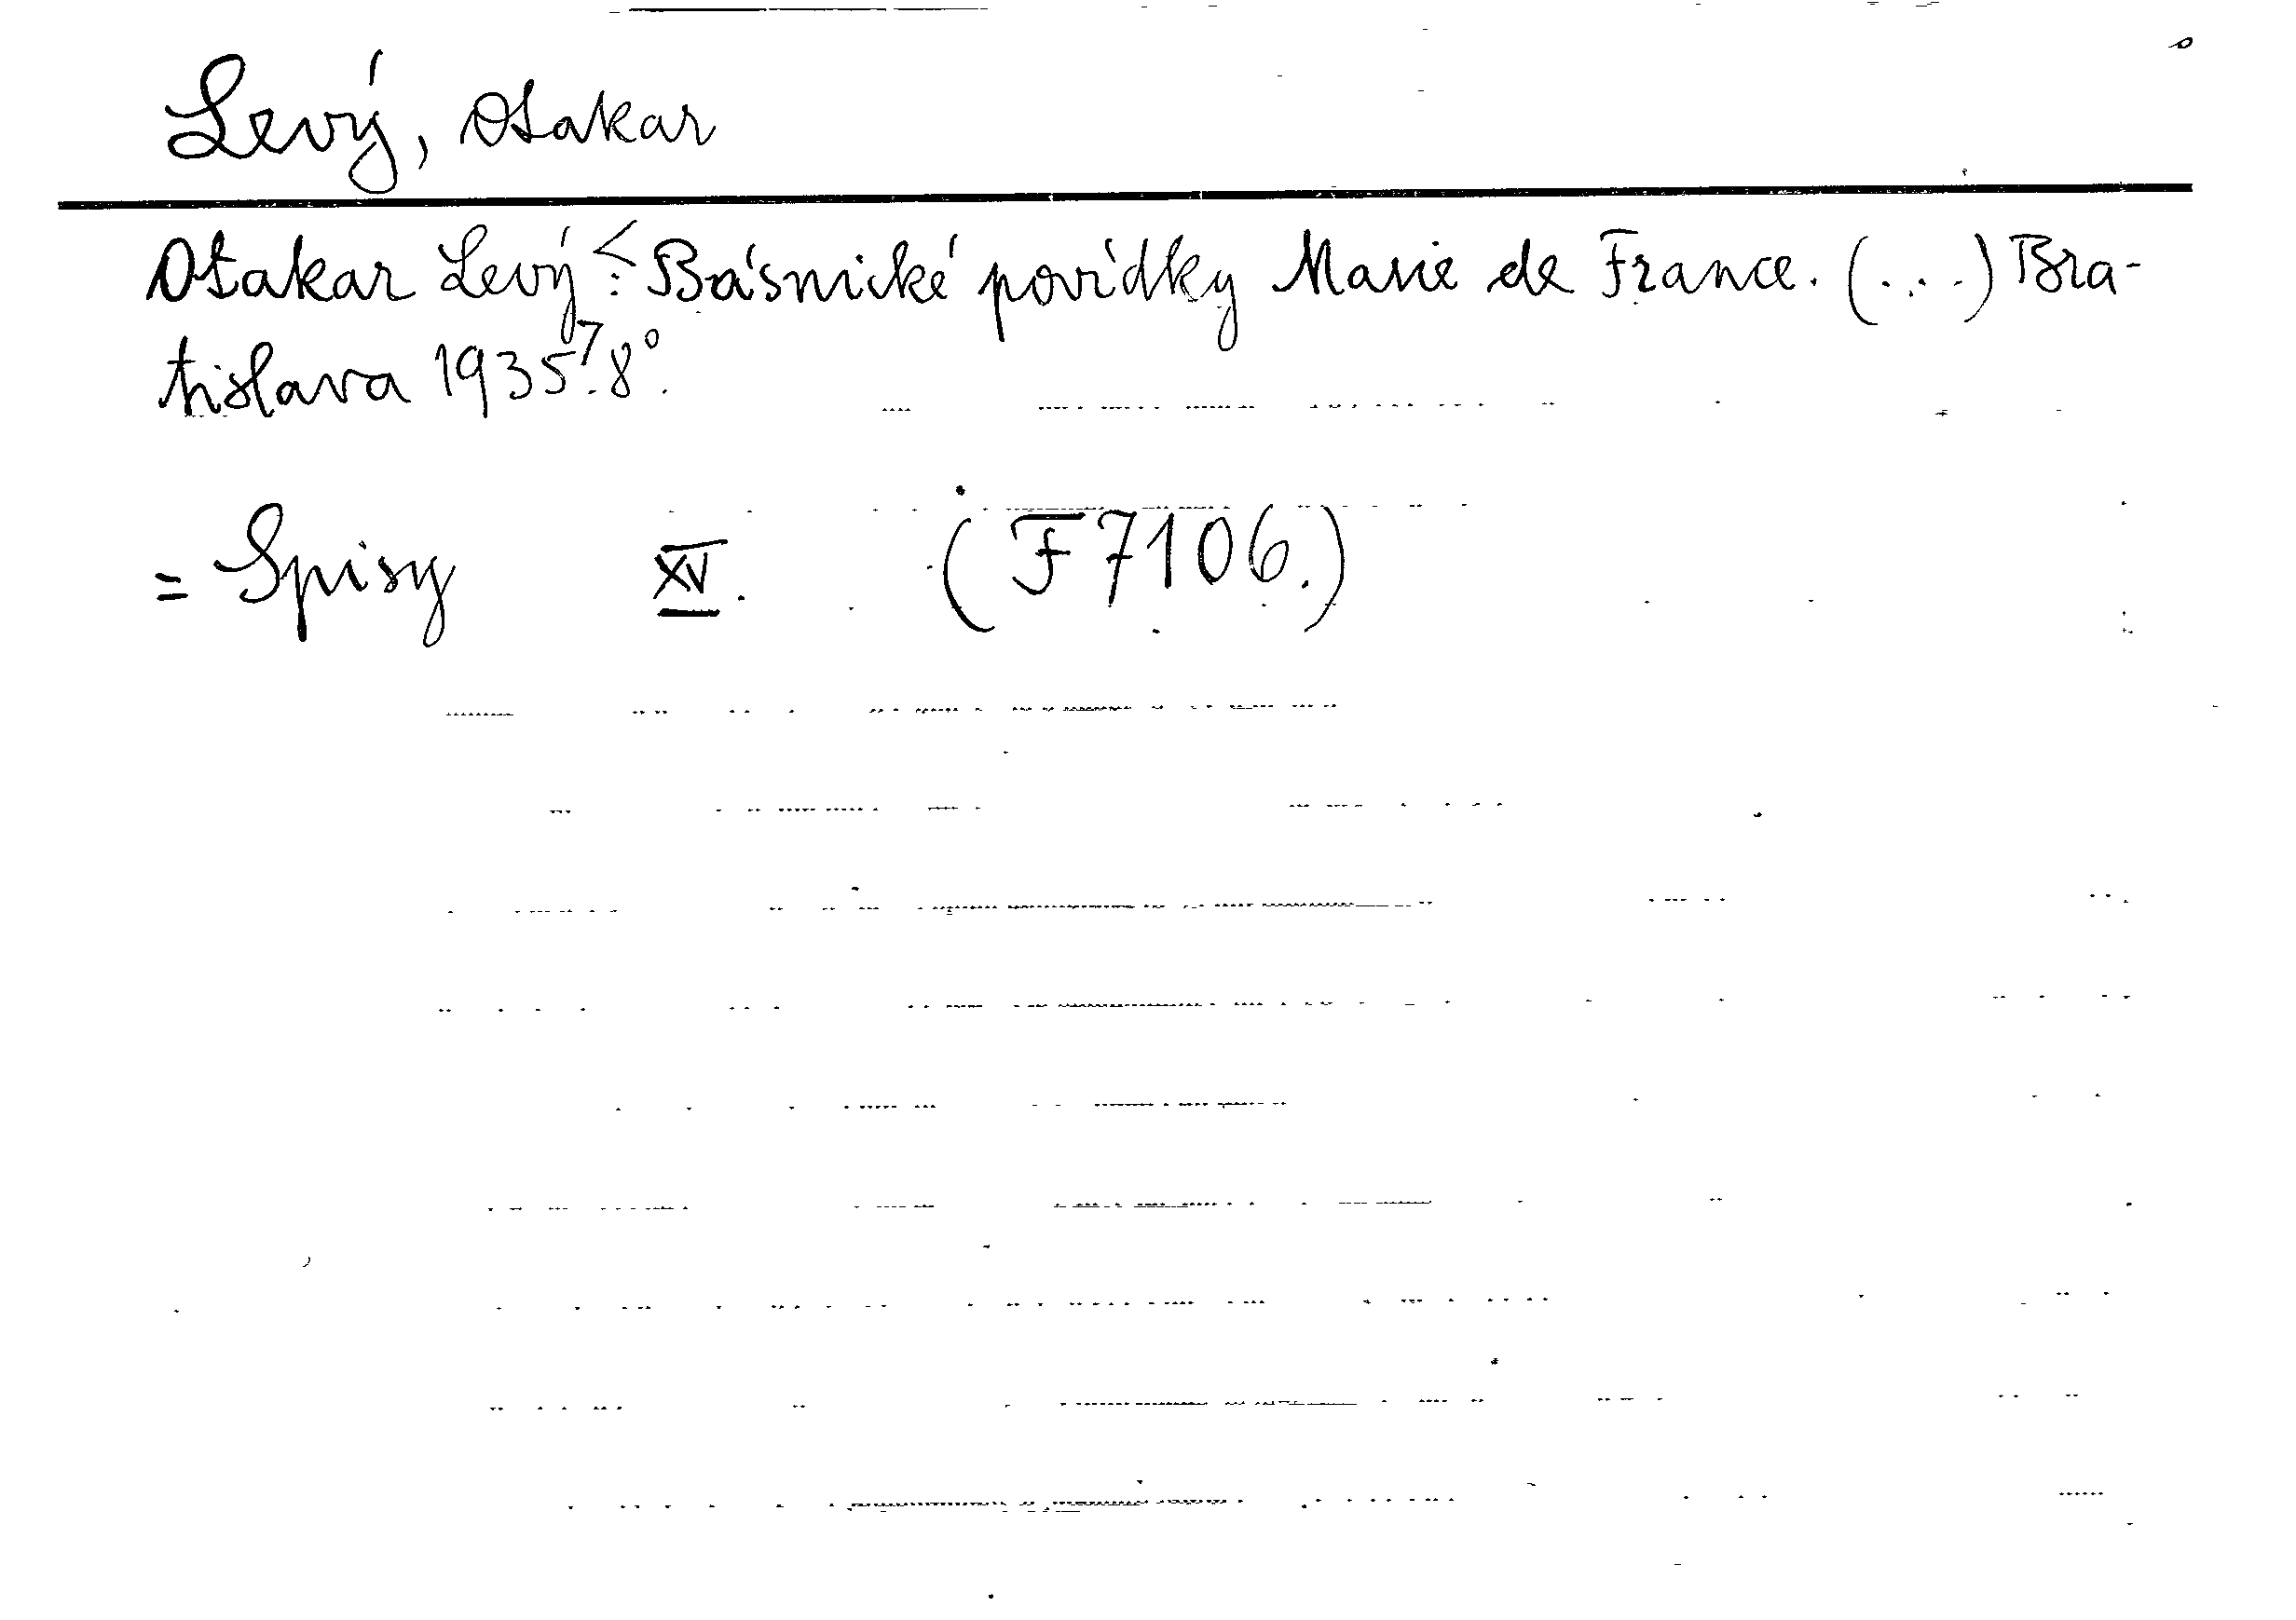 Levý, Otakar
Otakar Levý <: Básnické povídky Marie de France. (...) Bra-
tislava 1935 7. 8°.
= Spisy XV. (F 7106.)